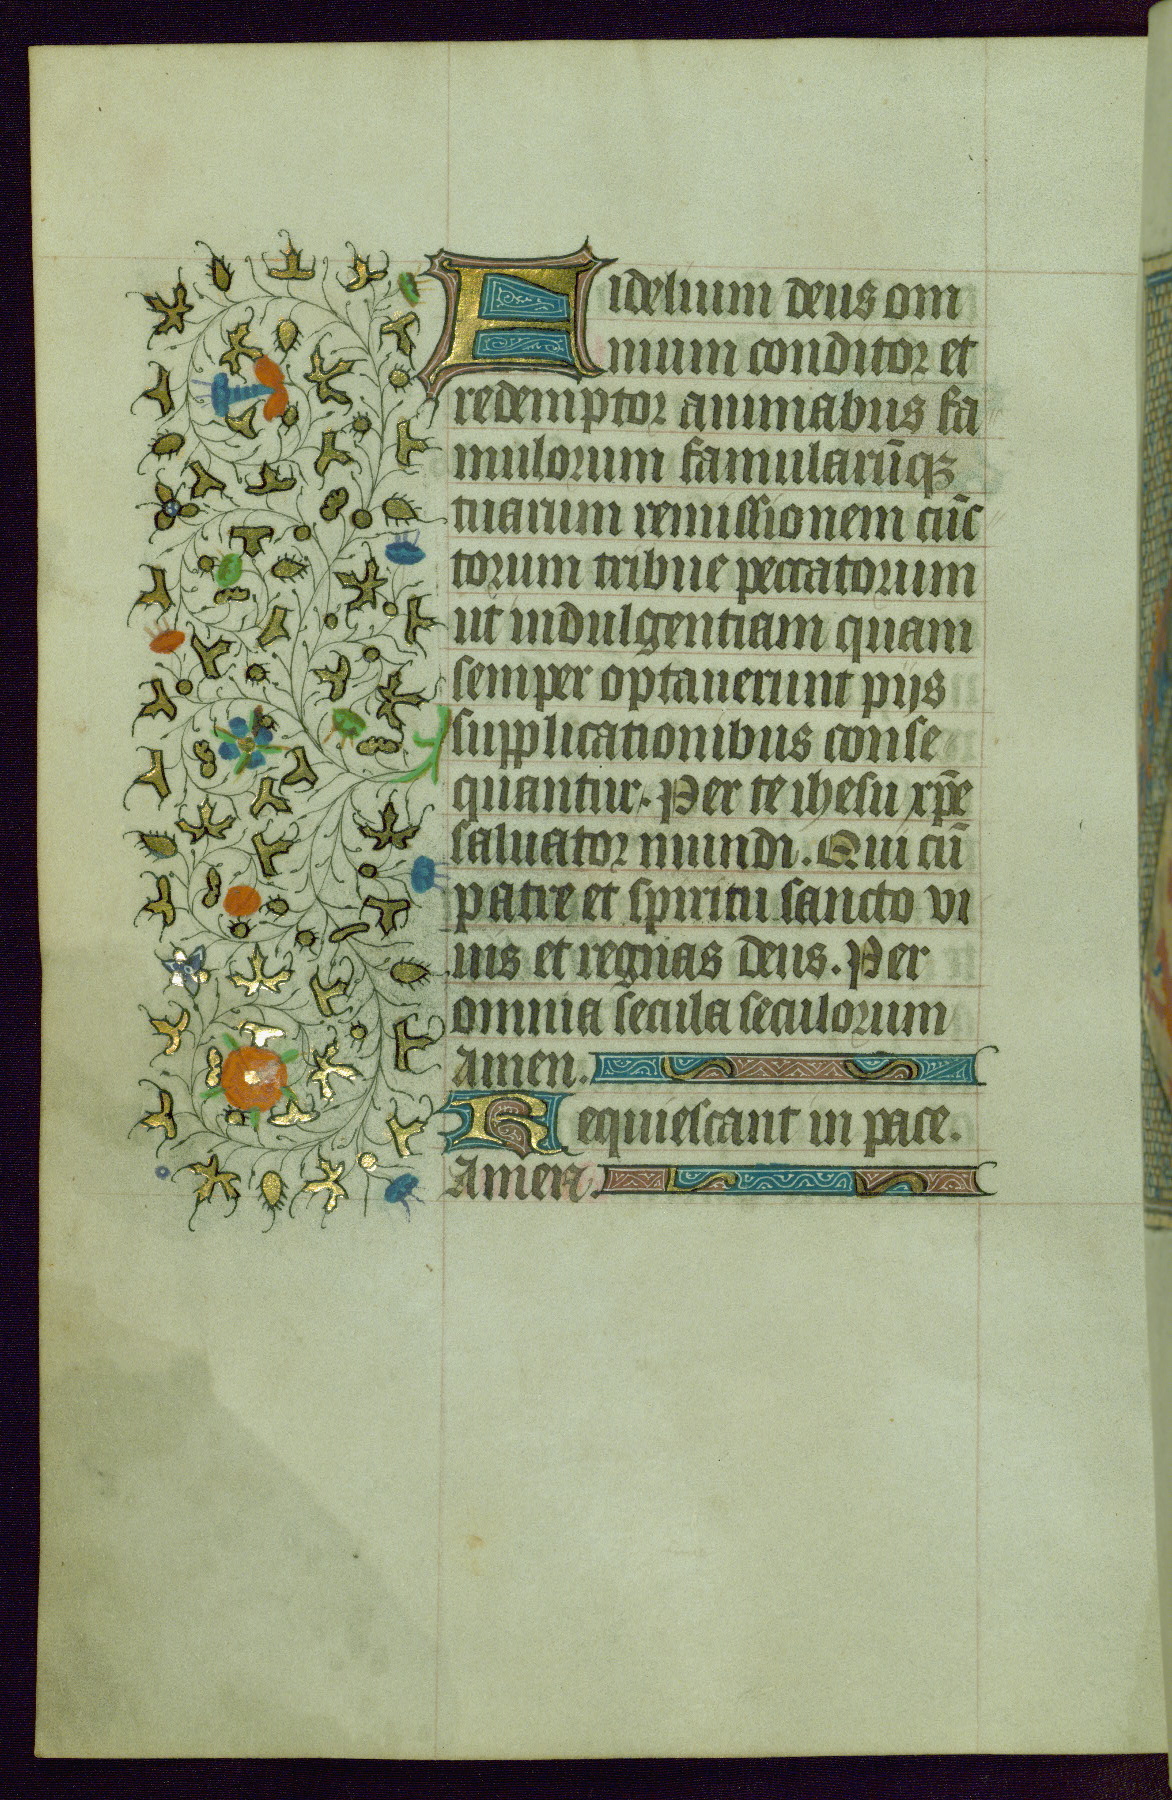 Fidelium deus om
nium conditor et
redemptor animabus fa
mulorum famularūqꝫ
tuarum remissionem cūc
torum tribue peccatorum
ut indulgentiam quam
semper optauerunt pijs
supplicationibus conse
quantur. Per te ihesu xp̄e
saluator mundi. Qui cū
patre et spiritu sancto vi
uis et regnas deus. Per
omnia secula seculorum
amen.
Requiescant in pace.
Amen.